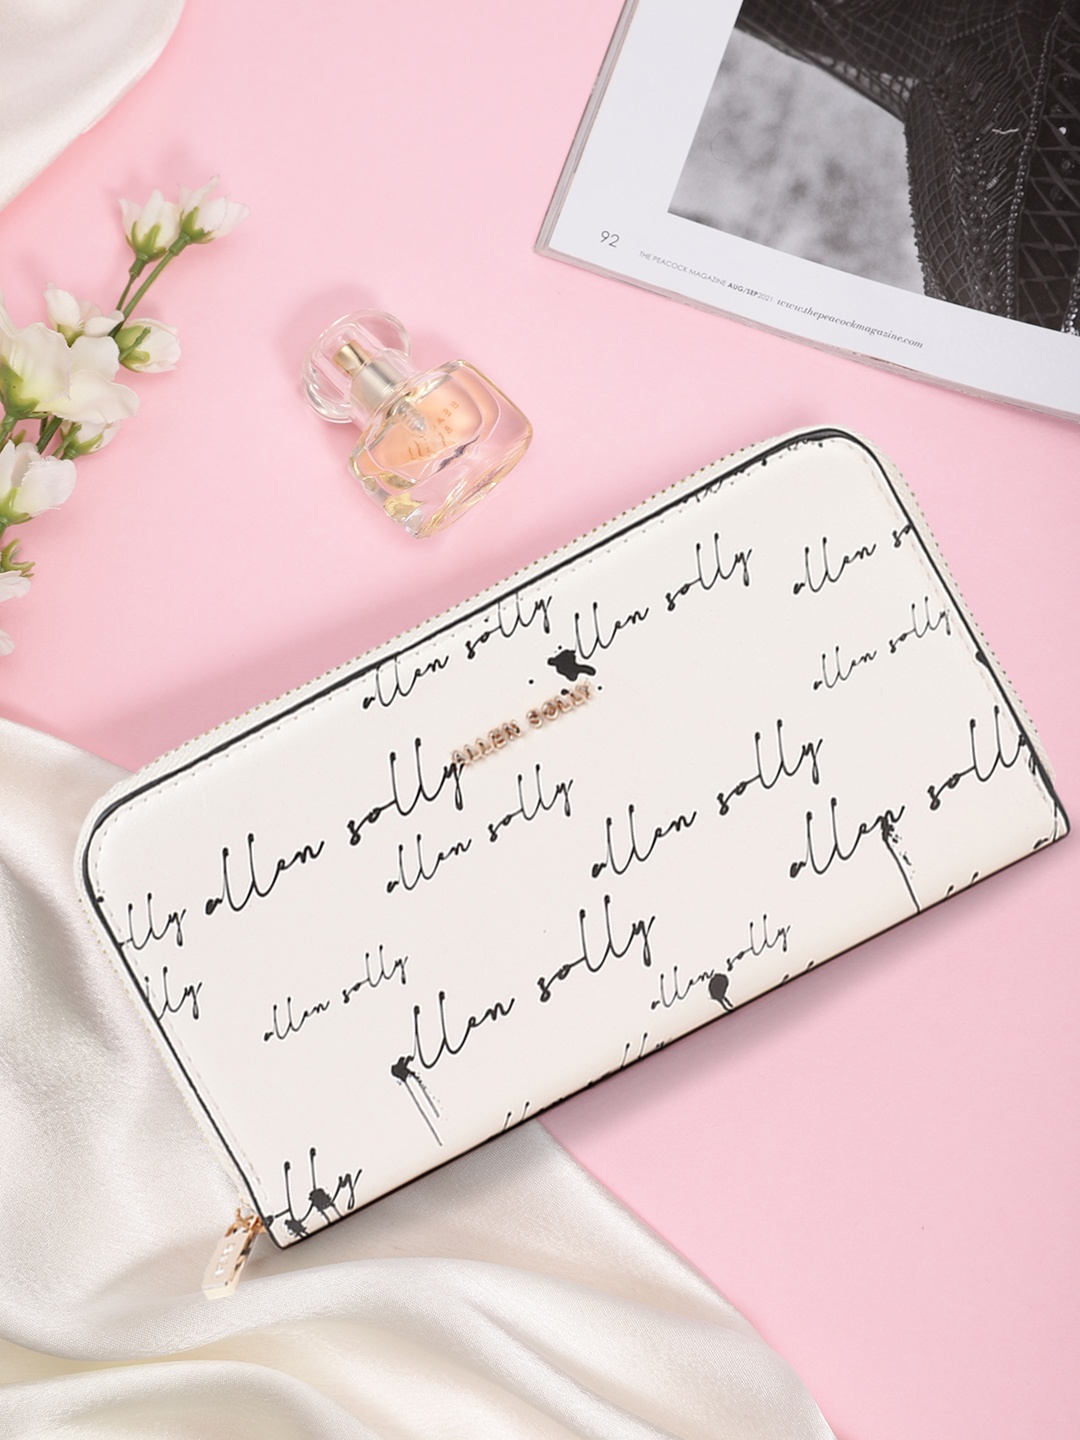 92
THE PEACOCK MAGAZINE AUG/SEP2021 www.thepeacockmagazine.com
allen solly
allen solly
allen so
allen solly
ALLEN SOLLY
allen solly
allen solly
allen solly
allen solly
lly
lly
allen solly
allen solly
allen solly
lly